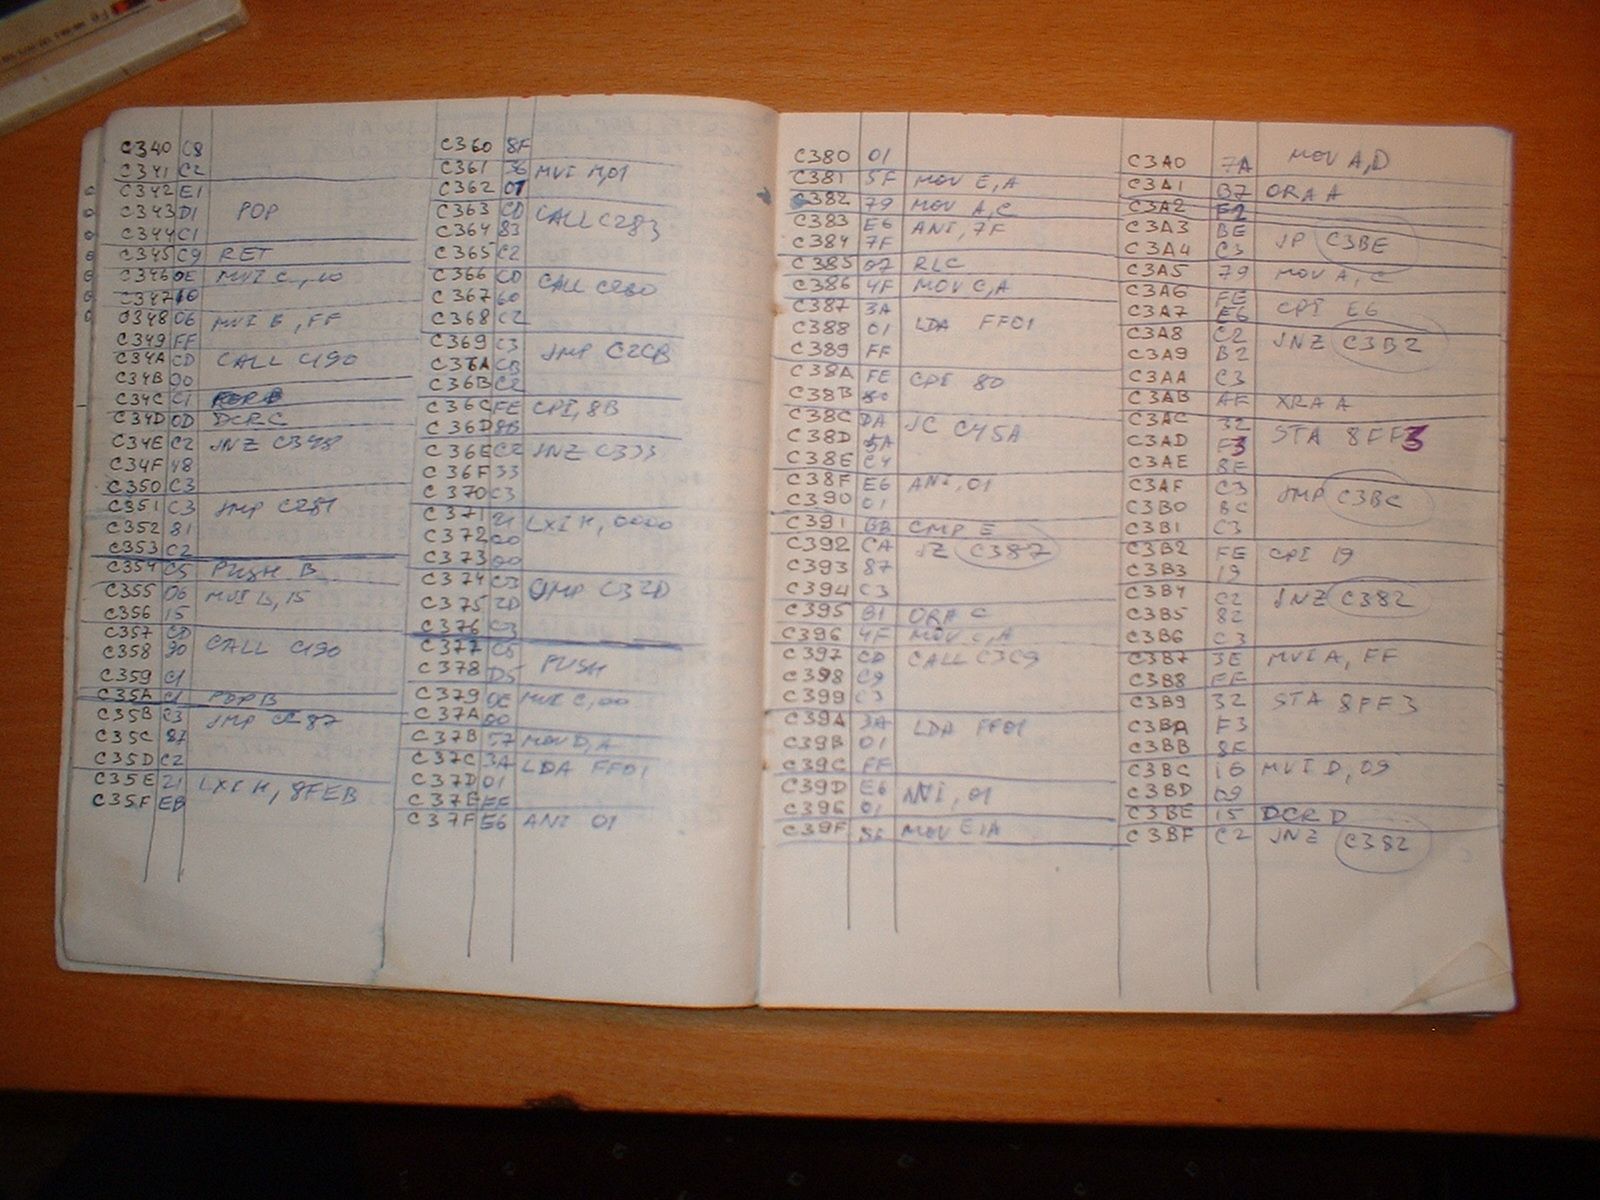 C340 C8
C341 C2
C342 E1
C343 D1 POP
C344 C1
C345 C9 RET
C346 0E MVI C, 10
C347 10
C348 06 MVI B, FF
C349 FF
C34A CD CALL C190
C34B 90
C34C C1
C34D 0D DCR C
C34E C2 JNZ C348
C34F 48
C350 C3
C351 C3 JMP C281
C352 81
C353 C2
C354 C5 PUSH B
C355 06 MVI B, 15
C356 15
C357 CD
C358 90 CALL C190
C359 C1
C35A C1 POP B
C35B C3 JMP C287
C35C 87
C35D C2
C35E 21 LXI H, 8FEB
C35F EB
C360 8F
C361 36 MVI M,01
C362 01
C363 CD CALL C283
C364 83
C365 C2
C366 CD CALL C260
C367 60
C368 C2
C369 C3 JMP C2CB
C36A CB
C36B C2
C36C FE CPI, 8B
C36D 8B
C36E C2 JNZ C333
C36F 33
C370 C3
C371 21 LXI H, 0000
C372 00
C373 00
C374 C3 JMP C32D
C375 2D
C376 C3
C377 C5
C378 D5 PUSH
C379 0E MVI C,00
C37A 00
C37B 57 MOV D, A
C37C 3A LDA FF01
C37D 01
C37E FF
C37F E6 ANI 01
C380 01
C381 5F MOV E, A
C382 79 MOV A, C
C383 E6 ANI, 7F
C384 7F
C385 07 RLC
C386 4F MOV C,A
C387 3A
C388 01 LDA FF01
C389 FF
C38A FE CPI 80
C38B 80
C38C DA JC C45A
C38D 5A
C38E C4
C38F E6 ANI, 01
C390 01
C391 BB CMP E
C392 CA JZ C387
C393 87
C394 C3
C395 B1 ORA C
C396 4F MOV C, A
C397 CD CALL C3C9
C398 C9
C399 C3
C39A 3A LDA FF01
C39B 01
C39C FF
C39D E6 ANI, 01
C39E 01
C39F 5F MOV E,A
C3A0 7A MOV A,D
C3A1 B7 ORA A
C3A2 F2
C3A3 BE JP C3BE
C3A4 C3
C3A5 79 MOV A, C
C3A6 FE
C3A7 E6 CPI E6
C3A8 C2 JNZ C3B2
C3A9 B2
C3AA C3
C3AB AF XRA A
C3AC 32
C3AD F3 STA 8FF3
C3AE 8F
C3AF C3 JMP C3BC
C3B0 BC
C3B1 C3
C3B2 FE CPI 19
C3B3 19
C3B4 C2 JNZ C382
C3B5 82
C3B6 C3
C3B7 3E MVI A, FF
C3B8 FF
C3B9 32 STA 8FF3
C3BA F3
C3BB 8F
C3BC 16 MVI D, 09
C3BD 09
C3BE 15 DCR D
C3BF C2 JNZ C382